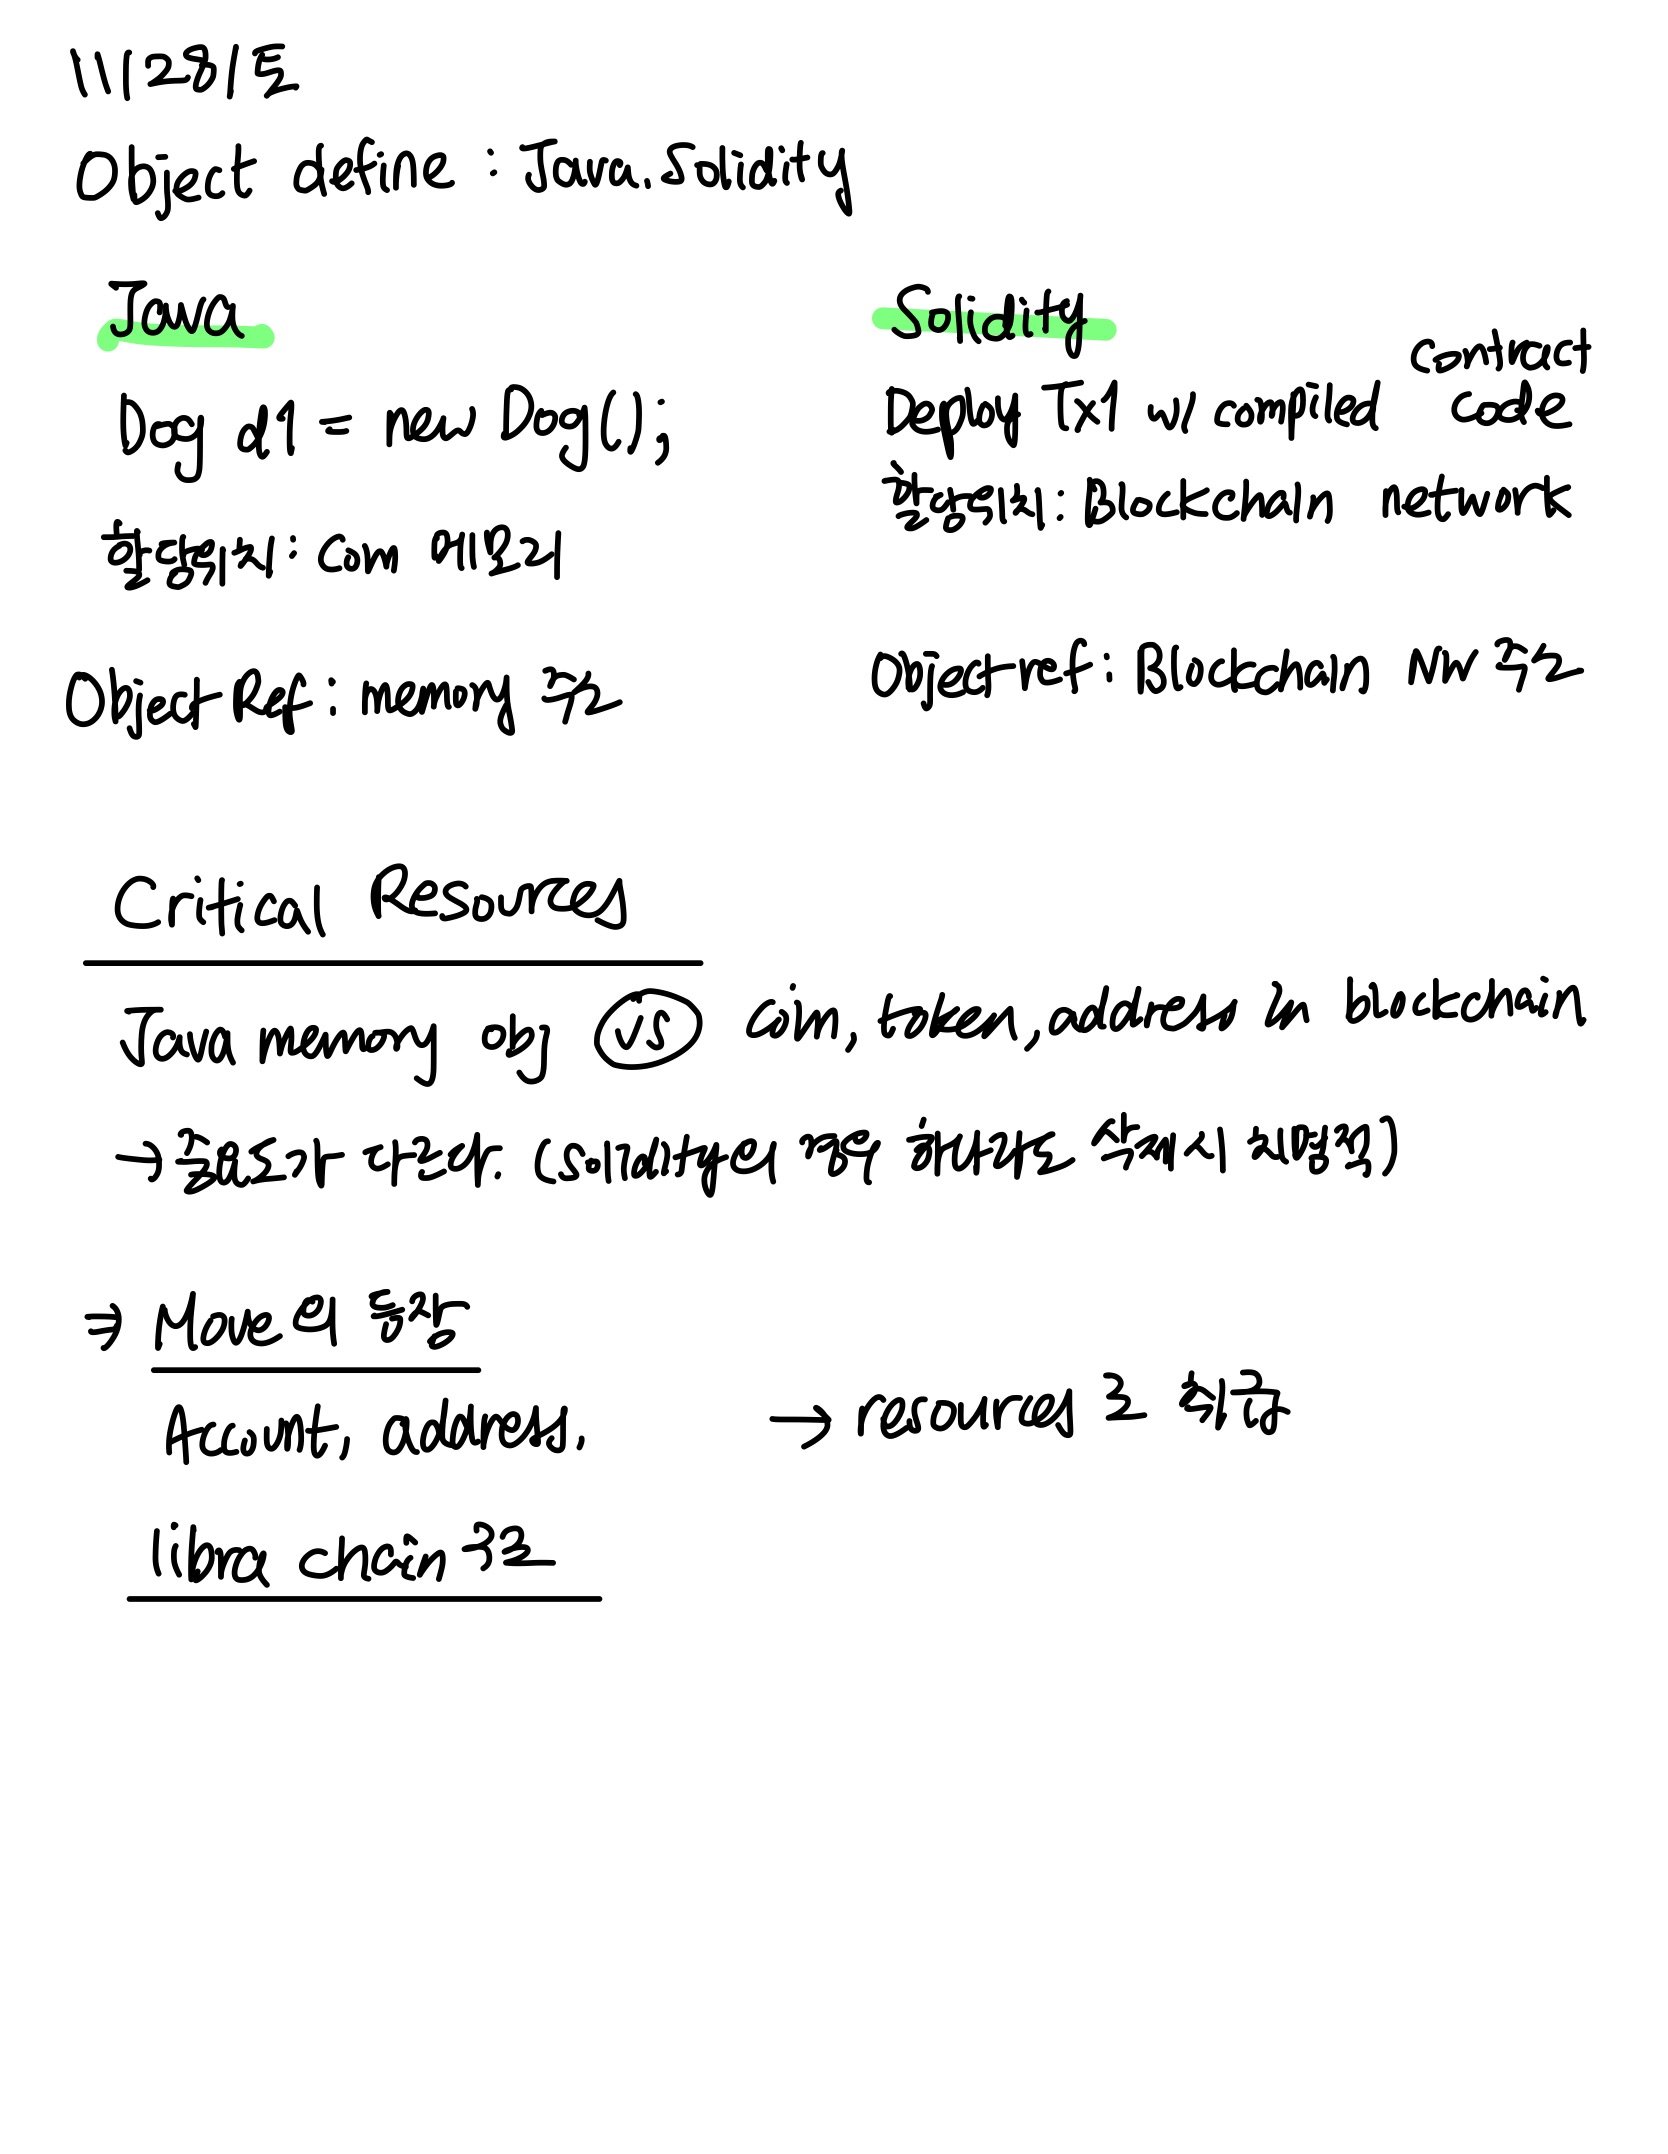 11/28/토
Object define : Java. Solidity
Java
Dog d1 = new Dog();
할당위치 : Com 메모리
Object Ref : memory 주소
Solidity
Deploy Tx1 w/ compiled contract code
할당위치 : Blockchain network
Object ref : Blockchain NW 주소
Critical Resources
Java memory obj vs coin, token, address in blockchain
→ 중요도가 다르다. (Solidity의 경우 하나라도 삭제시 치명적)
⇒ Move의 등장
Account, address, → resources 로 취급
libra chain 구조